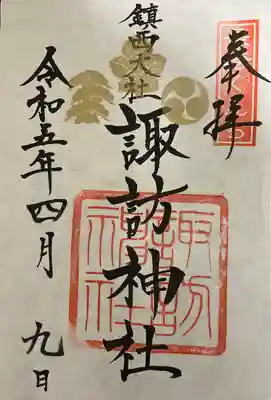 奉拝
鎮西大社
諏訪神社
令和五年四月九日
諏訪神社